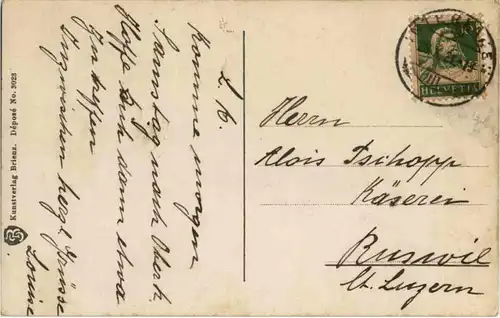 L. B.
Komme morgen
Samstag nach Oberk.
Hoffe Dich dann etwa
zu treffen
Inzwischen herzl. Grüsse
Louise
Kunstverlag Brienz. Déposé No. 3023
HELVETIA
Herrn
Alois Tschopp
Käserei
Ruswil
Ct. Luzern